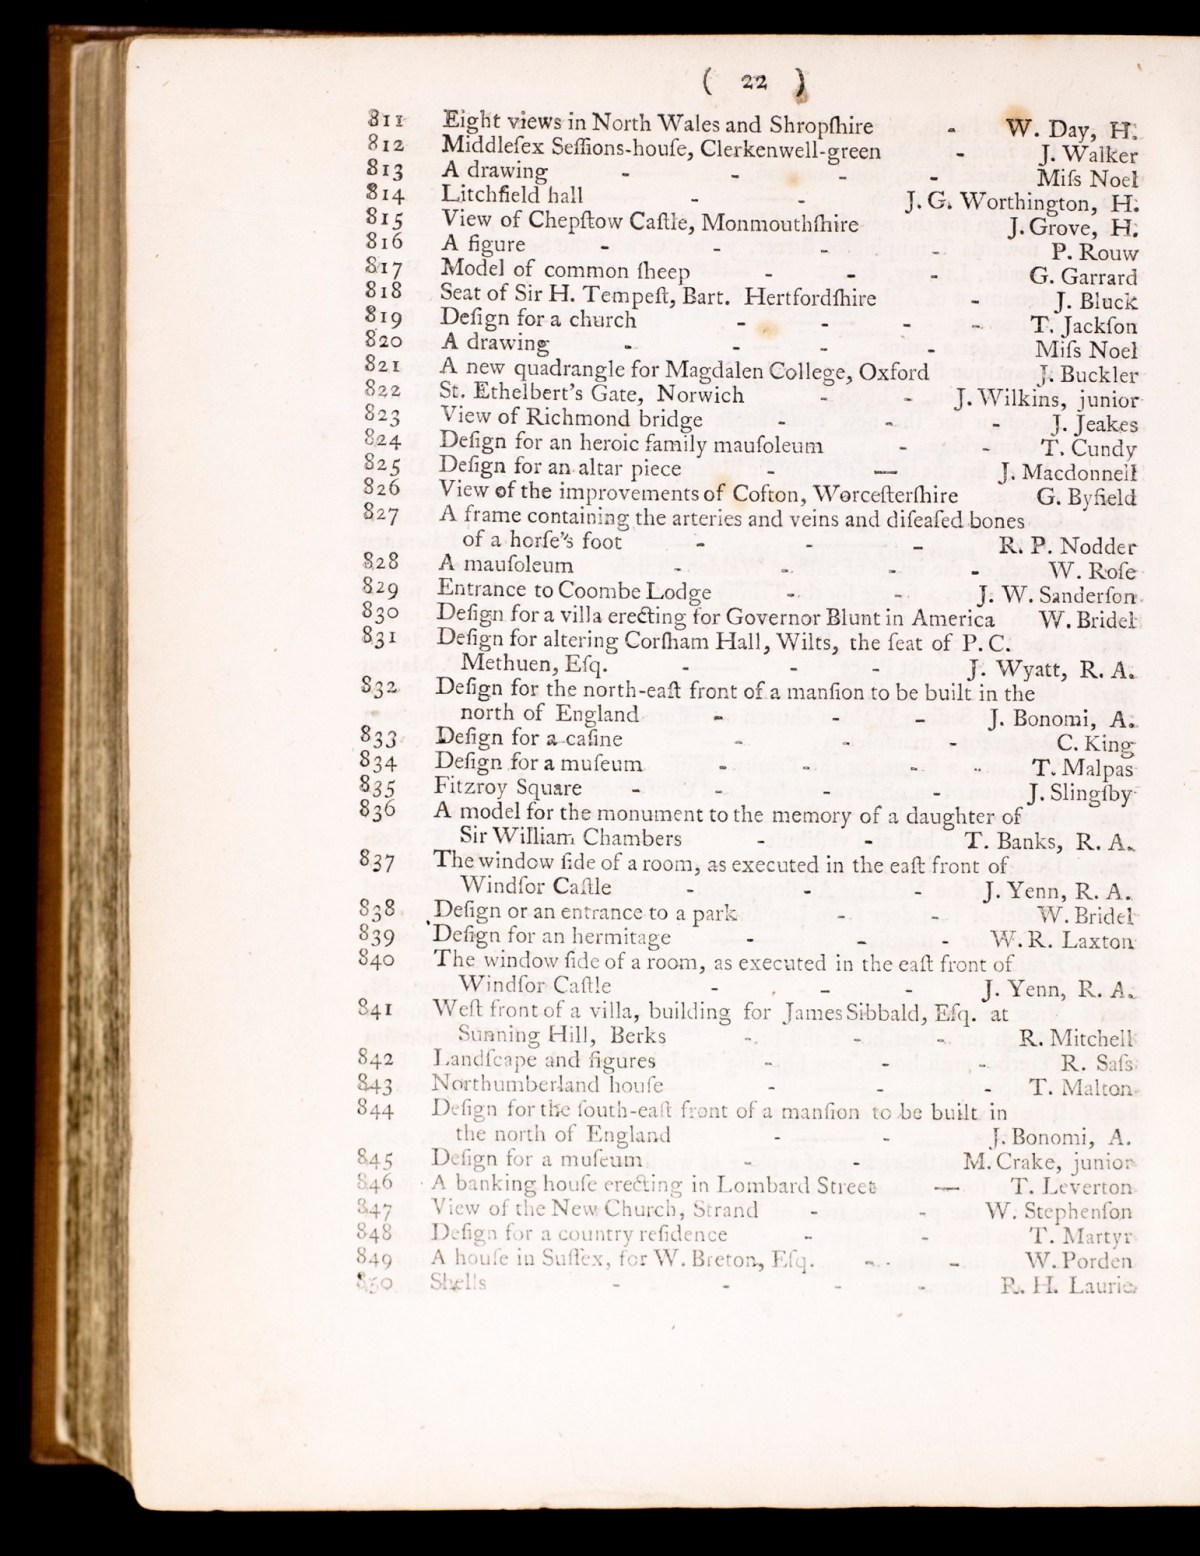 ( 22 )
811 Eight views in North Wales and Shropſhire - W. Day, H.
812 Middleſex Seſſions-houſe, Clerkenwell-green - J. Walker
813 A drawing - - - - Miſs Noel
814 Litchfield hall - - J. G. Worthington, H.
815 View of Chepſtow Caſtle, Monmouthſhire J. Grove, H.
816 A figure - - - - P. Rouw
817 Model of common ſheep - - - G. Garrard
818 Seat of Sir H. Tempeſt, Bart. Hertfordſhire - J. Bluck
819 Deſign for a church - - - - T. Jackſon
820 A drawing - - - - Miſs Noel
821 A new quadrangle for Magdalen College, Oxford J. Buckler
822 St. Ethelbert's Gate, Norwich - - J. Wilkins, junior
823 View of Richmond bridge - - - J. Jeakes
824 Deſign for an heroic family mauſoleum - - T. Cundy
825 Deſign for an altar piece - — J. Macdonnell
826 View of the improvements of Cofton, Worceſterſhire G. Byfield
827 A frame containing the arteries and veins and diſeaſed bones
of a horſe's foot - - - R. P. Nodder
828 A mauſoleum - - - - W. Roſe
829 Entrance to Coombe Lodge - - J. W. Sanderſon
830 Deſign for a villa erecting for Governor Blunt in America W. Bridel
831 Deſign for altering Corſham Hall, Wilts, the ſeat of P. C.
Methuen, Eſq. - - - J. Wyatt, R. A.
832 Deſign for the north-eaſt front of a manſion to be built in the
north of England - - - J. Bonomi, A.
833 Deſign for a caſine - - - C. King
834 Deſign for a muſeum - - - - T. Malpas
835 Fitzroy Square - - - - J. Slingſby
836 A model for the monument to the memory of a daughter of
Sir William Chambers - - T. Banks, R. A.
837 The window ſide of a room, as executed in the eaſt front of
Windſor Caſtle - - - J. Yenn, R. A.
838 Deſign or an entrance to a park - - W. Bridel
839 Deſign for an hermitage - - - W. R. Laxton
840 The window ſide of a room, as executed in the eaſt front of
Windſor Caſtle - - - J. Yenn, R. A.
841 Weſt front of a villa, building for James Sibbald, Eſq. at
Sunning Hill, Berks - - - R. Mitchell
842 Landſcape and figures - - - R. Saſs
843 Northumberland houſe - - - T. Malton
844 Deſign for the ſouth-eaſt front of a manſion to be built in
the north of England - - J. Bonomi, A.
845 Deſign for a muſeum - - M. Crake, junior
846 A banking houſe erecting in Lombard Street — T. Leverton
847 View of the New Church, Strand - - W. Stephenſon
848 Deſign for a country reſidence - - T. Martyr
849 A houſe in Suſſex, for W. Breton, Eſq. - - W. Porden
850 Shells - - - - R. H. Laurie